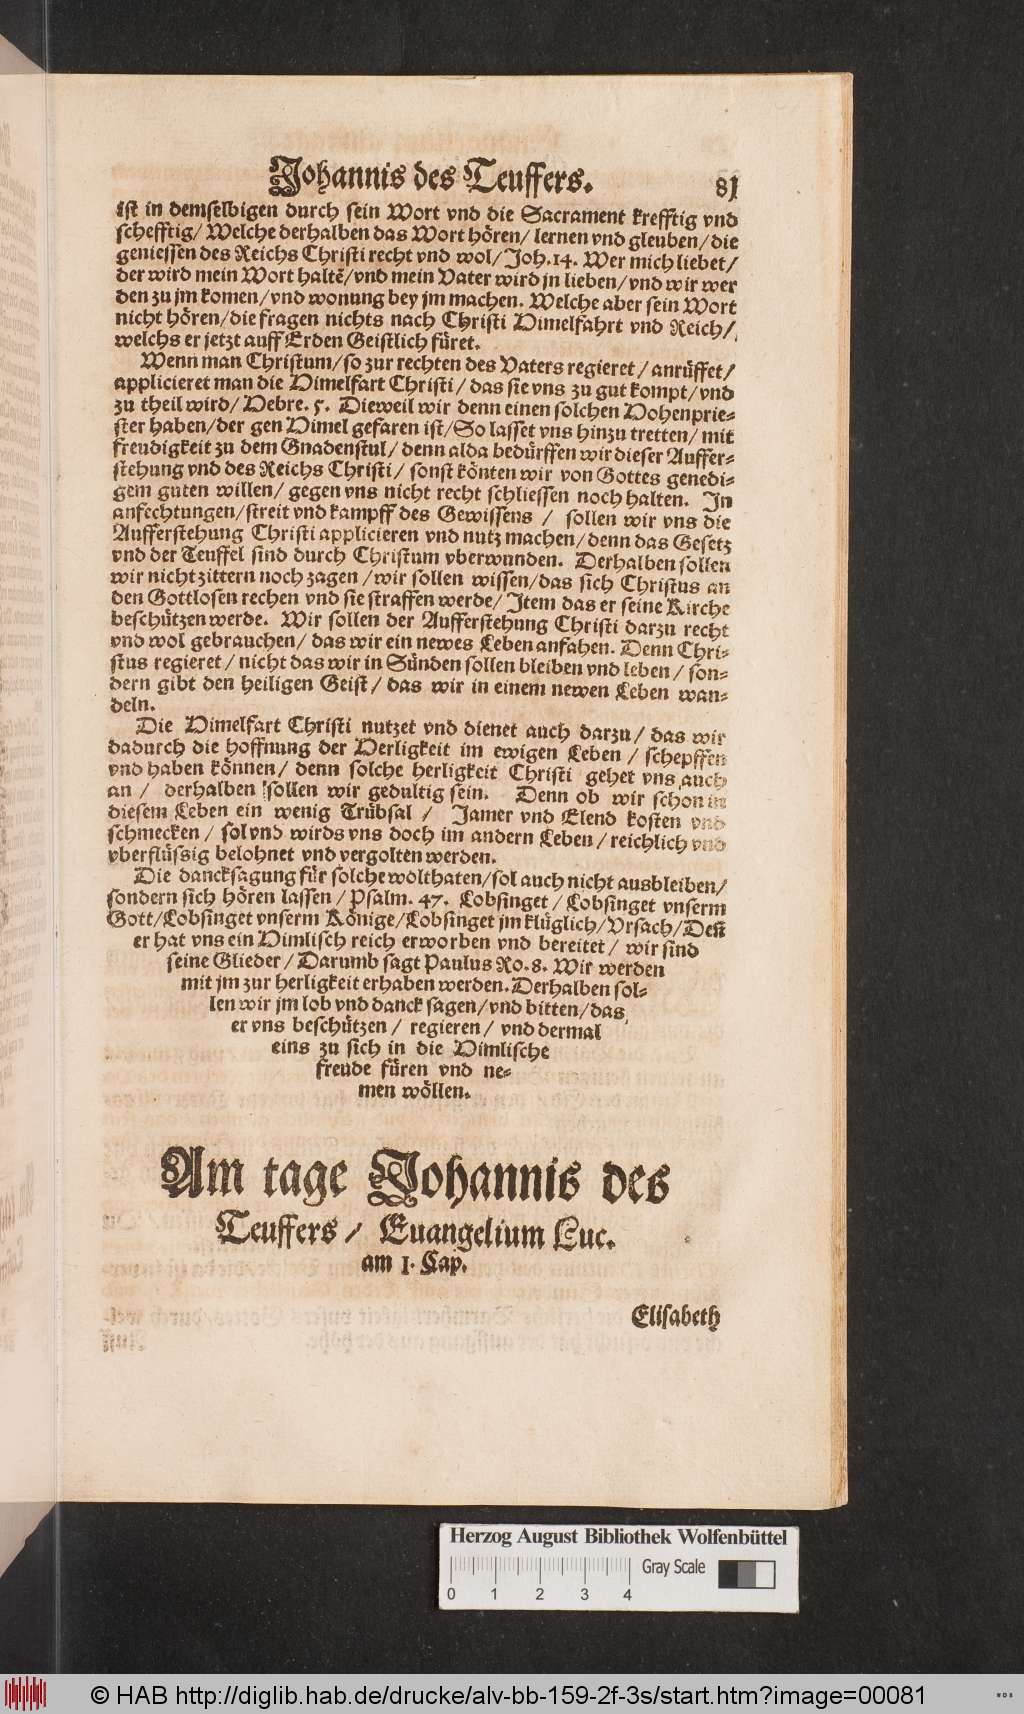 Johannis des Teuffers. 81
ist in demselbigen durch sein Wort vnd die Sacrament krefftig vnd
schefftig/ Welche derhalben das Wort hören/ lernen vnd gleuben/ die
geniessen des Reichs Christi recht vnd wol/ Joh. 14. Wer mich liebet/
der wird mein Wort haltẽ/ vnd mein Vater wird jn lieben/ vnd wir wer
den zu jm komen/ vnd wonung bey jm machen. Welche aber sein Wort
nicht hören/ die fragen nichts nach Christi Himelfahrt vnd Reich/
welchs er jetzt auff Erden Geistlich füret.
Wenn man Christum/ so zur rechten des Vaters regieret/ anrüffet/
applicieret man die Himelfart Christi/ das sie vns zu gut kompt/ vnd
zu theil wird/ Hebre. 5. Dieweil wir denn einen solchen Hohenprie-
ster haben/ der gen Himel gefaren ist/ So lasset vns hinzu tretten/ mit
freudigkeit zu dem Gnadenstul/ denn alda bedürffen wir dieser Auffer-
stehung vnd des Reichs Christi/ sonst könten wir von Gottes genedi-
gem guten willen/ gegen vns nicht recht schliessen noch halten. In
anfechtungen/ streit vnd kampff des Gewissens/ sollen wir vns die
Aufferstehung Christi applicieren vnd nutz machen/ denn das Gesetz
vnd der Teuffel sind durch Christum vberwunden. Derhalben sollen
wir nicht zittern noch zagen/ wir sollen wissen/ das sich Christus an
den Gottlosen rechen vnd sie straffen werde/ Item das er seine Kirche
beschützen werde. Wir sollen der Aufferstehung Christi darzu recht
vnd wol gebrauchen/ das wir ein newes Leben anfahen. Denn Chri-
stus regieret/ nicht das wir in Sünden sollen bleiben vnd leben/ son-
dern gibt den heiligen Geist/ das wir in einem newen Leben wan-
deln.
Die Himelfart Christi nutzet vnd dienet auch darzu/ das wir
dadurch die hoffnung der Herligkeit im ewigen Leben/ schepffen
vnd haben können/ denn solche herligkeit Christi gehet vns auch
an/ derhalben sollen wir gedultig sein. Denn ob wir schon in
diesem Leben ein wenig Trübsal/ Jamer vnd Elend kosten vnd
schmecken/ sol vnd wirds vns doch im andern Leben/ reichlich vnd
vberflüssig belohnet vnd vergolten werden.
Die dancksagung für solche wolthaten/ sol auch nicht ausbleiben/
sondern sich hören lassen/ Psalm. 47. Lobsinget/ Lobsinget vnserm
Gott/ Lobsinget vnserm Könige/ Lobsinget jm klüglich/ Vrsach/ Deñ
er hat vns ein Himlisch reich erworben vnd bereitet/ wir sind
seine Glieder/ Darumb sagt Paulus Ro. 8. Wir werden
mit jm zur herligkeit erhaben werden. Derhalben sol-
len wir jm lob vnd danck sagen/ vnd bitten/ das
er vns beschützen/ regieren/ vnd dermal
eins zu sich in die Himlische
freude füren vnd ne-
men wöllen.
Am tage Johannis des
Teuffers/ Euangelium Luc.
am 1. Cap.
Elisabeth
Herzog August Bibliothek Wolfenbüttel
Gray Scale
0 1 2 3 4
© HAB http://diglib.hab.de/drucke/alv-bb-159-2f-3s/start.htm?image=00081